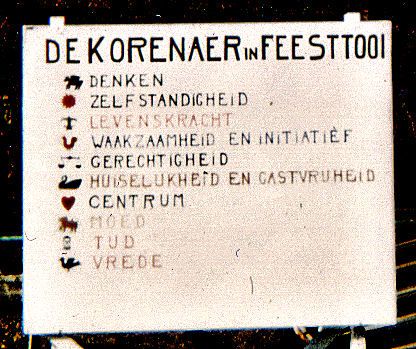 DE KORENAER IN FEESTTOOI
DENKEN
ZELFSTANDIGHEID
LEVENSKRACHT
WAAKZAAMHEID EN INITIATIEF
GERECHTIGHEID
HUISELIJKHEID EN GASTVRIJHEID
CENTRUM
MOED
TIJD
VREDE